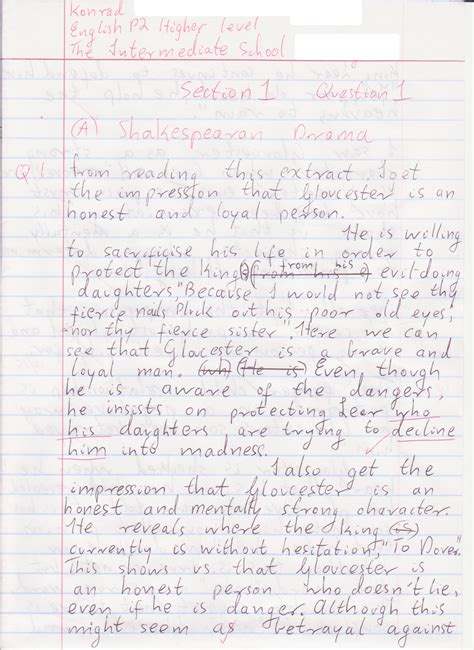 Konrad
English P2 Higher Level
The Intermediate School
Section 1 Question 1
(A) Shakespearan Drama
Q1. from reading this extract I get
the impression that Gloucester is an
honest and loyal person.
He is willing
to sacrificise his life in order to
protect the king from his evil doing
daughters, "Because I would not see thy
fierce nails Pluck out his poor old eyes,
nor thy fierce sister". Here we can
see that Glocester is a brave and
loyal man. (wh) (He is) Even though
he is aware of the dangers,
he insists on protecting Lear who
his daighters are trying to decline
him into madness.
I also get the
impression that Gloucester is an
honest and mentally strong character.
He reveals where the king (is)
currently is without hesitation, "To Dover."
This shows us that Gloucester is
an honest person who doesn't lie,
even if he is danger. Although this
might seem as betrayal against